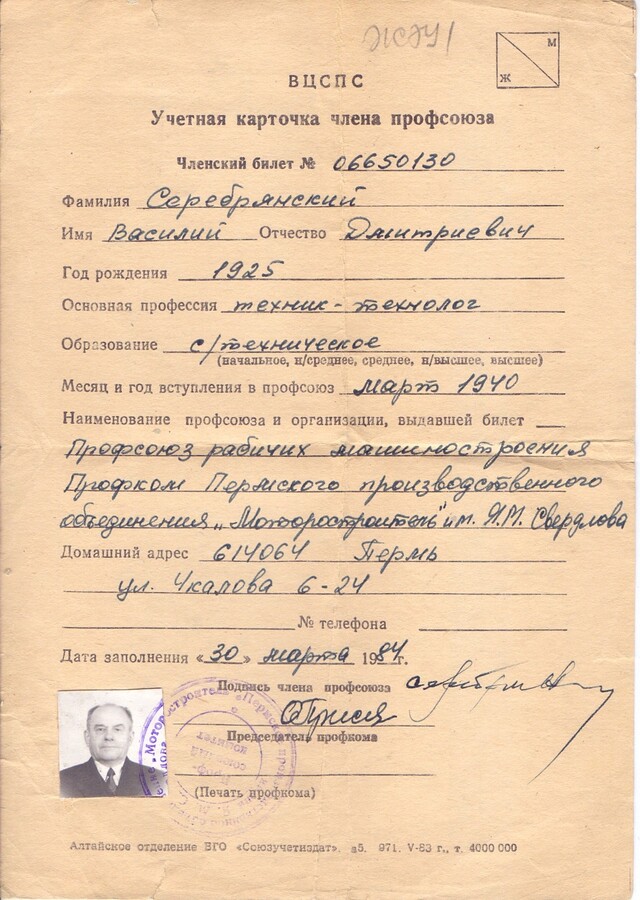 М
Ж
ВЦСПС
Учетная карточка члена профсоюза
Членский билет № 06650130
Фамилия Серебрянский
Имя Василий Отчество Дмитриевич
Год рождения 1925
Основная профессия техник-технолог
Образование с/техническое
(начальное, н/среднее, среднее, н/высшее, высшее)
Месяц и год вступления в профсоюз март 1940
Наименование профсоюза и организации, выдавшей билет
Профсоюз рабичих машиностроения
Профком Пермского производственного
объединения „Моторостроитель" им. Я.М. Свердлова
Домашний адрес 614064 Пермь
ул. Чкалова 6-24
№ телефона
Дата заполнения «30» марта 1984г.
Подпись члена профсоюза
Председатель профкома
(Печать профкома)
Алтайское отделение ВГО «Союзучетиздат». з5. 971. V-83 г., т. 4000 000